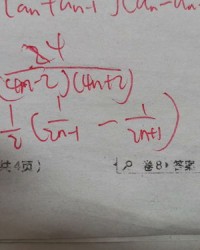 (an + an-1)(an - an
24
(4n-2)(4n+2)
1/2 (1/2n-1 - 1/2n+1)
共4页)